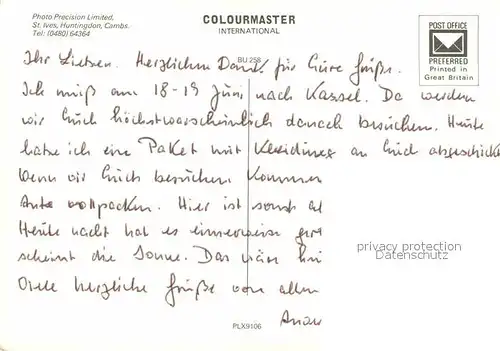 Photo Precision Limited,
St. Ives, Huntingdon, Cambs.
Tel: (0480) 64364
COLOURMASTER
INTERNATIONAL
POST OFFICE
PREFERRED
Printed in
Great Britain
BU 258
Ihr Lieben. Herzlichen Dank für Eure Grüße.
Ich muß am 18-19 Juni nach Kassel. Da werden
wir Euch höchstwarscheinlich danach besuchen. Heute
habe ich ein Paket mit Kleidung an Euch abgeschickt
Wenn wir Euch besuchen kommen
Auto vollpacken. Hier ist sonst al
Heute nacht hat es
scheint die Sonne. Das wär
Viele herzliche Grüße von allen
privacy protection
Datenschutz
PLX9106